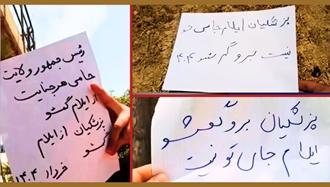 رئیس جمهور ولایت
حامی هر جنایت
از ایلام گمشو
پزشکیان از ایلام
گمشو
خرداد ۱۴۰۴
پزشکیان ایلام جای تو
نیست برو گمشو ۱۴۰۴
پزشکیان برو گمشو
ایلام جای تو نیست